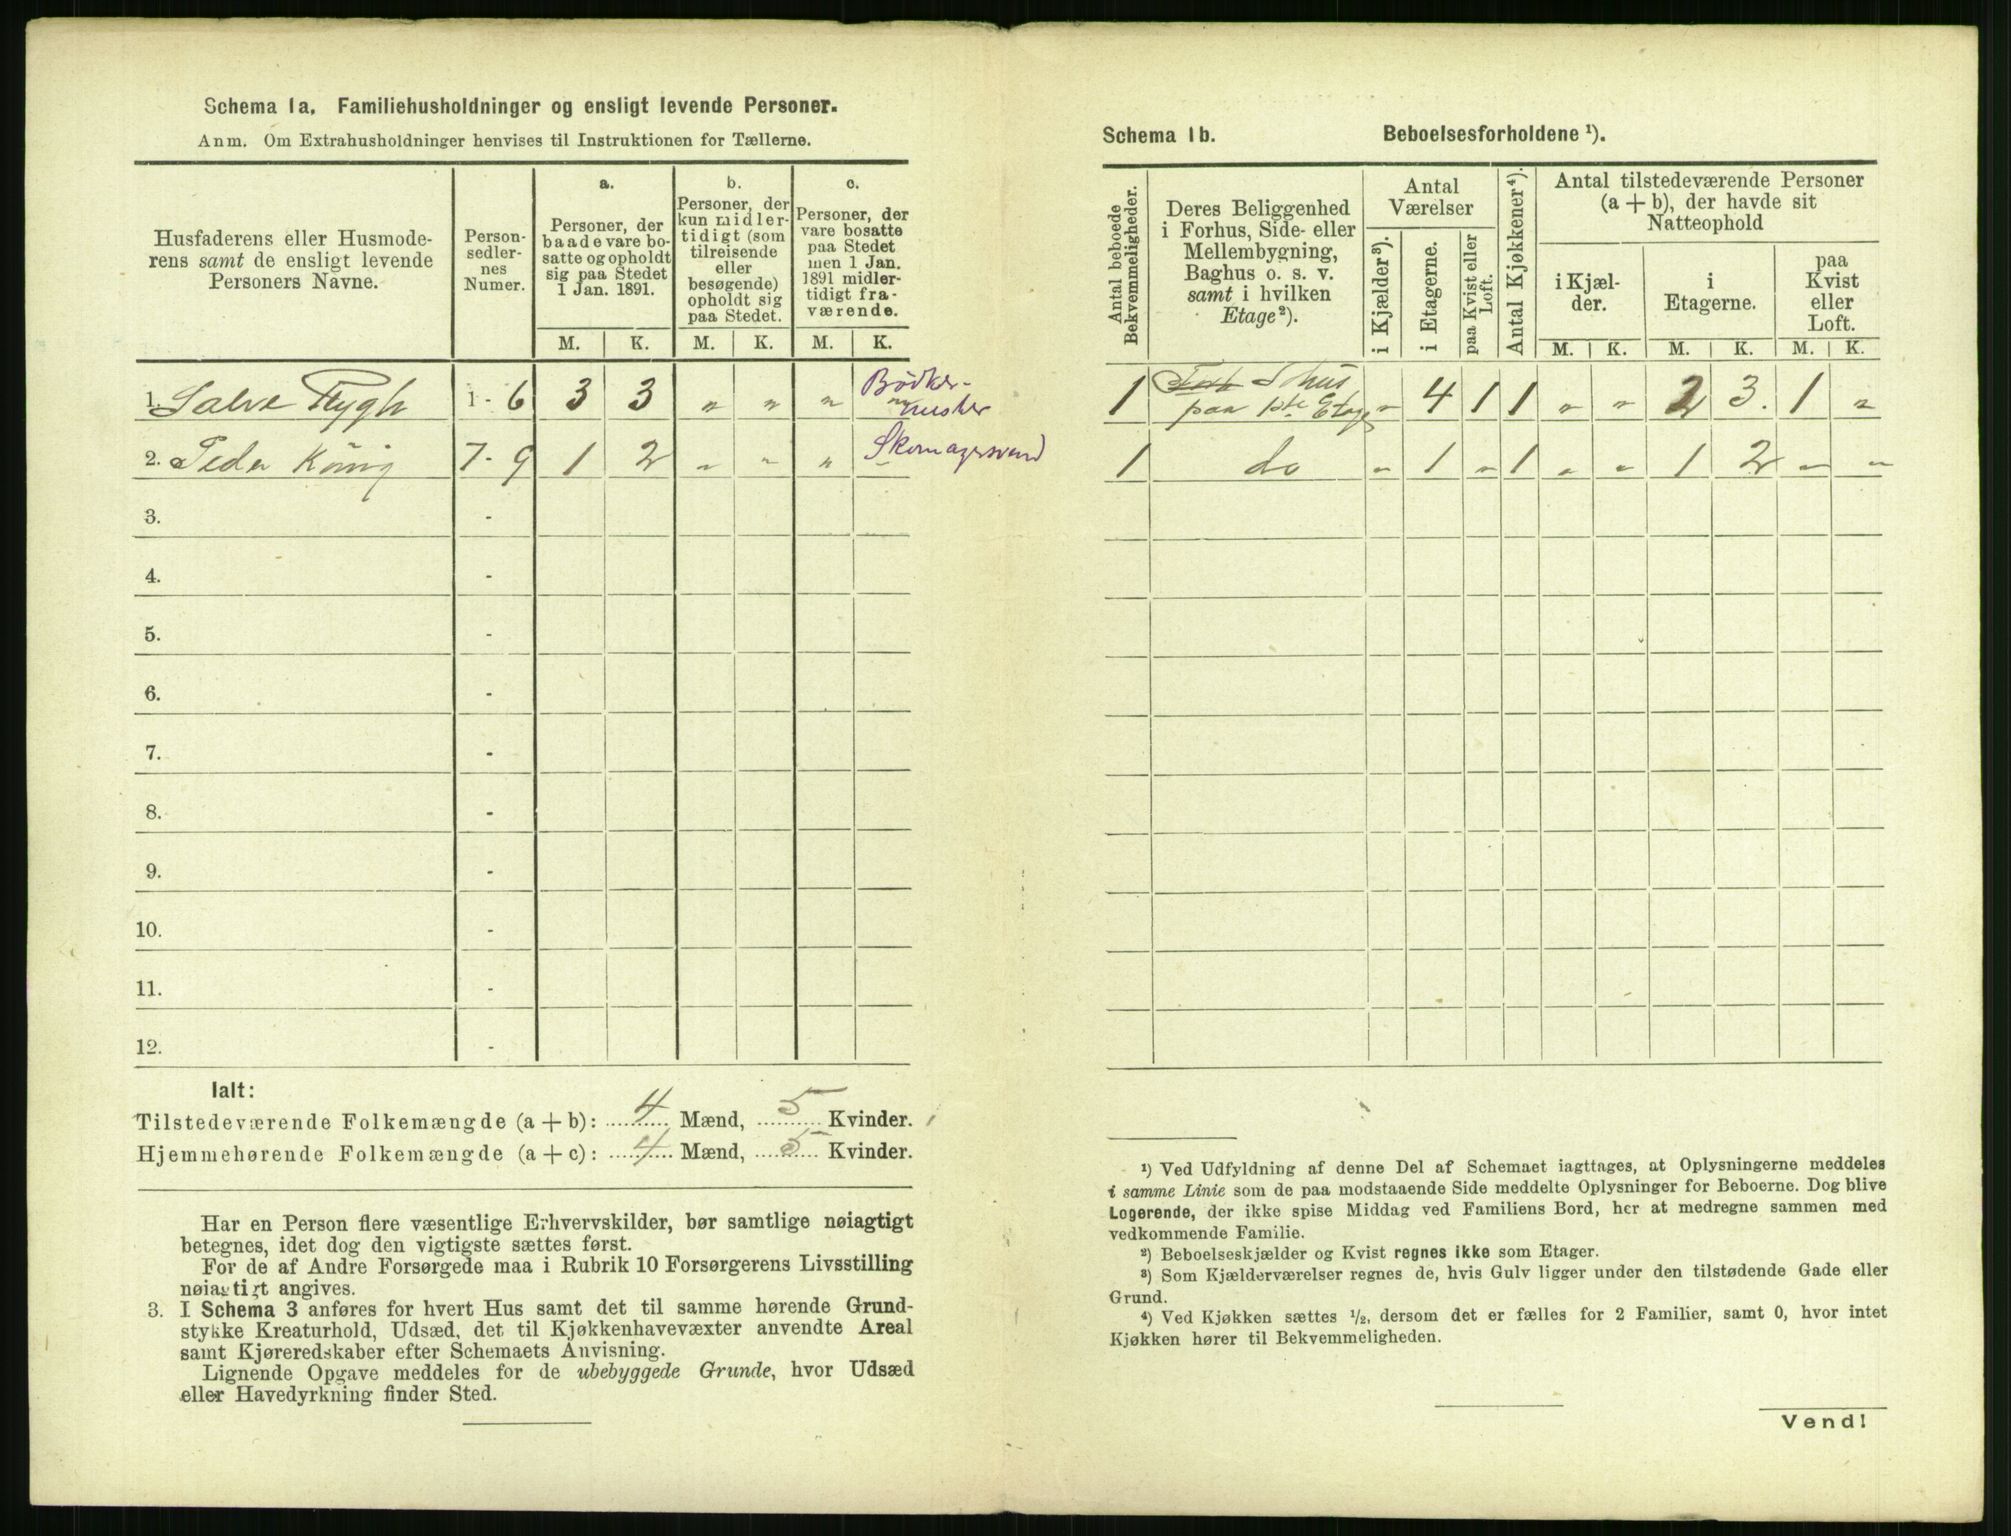 Schema 1a. Familiehusholdninger og ensligt levende Personer.
Anm. Om Extrahusholdninger henvises til Instruktionen for Tællerne.
Husfaderens eller Husmode-
rens samt de ensligt levende
Personers Navne.
Person-
sedler-
nes
Numer.
a.
Personer, der
baade vare bo-
satte og opholdt
sig paa Stedet
1 Jan. 1891.
b.
Personer, der
kun midler-
tidigt (som
tilreisende
eller
besøgende)
opholdt sig
paa Stedet.
c.
Personer, der
vare bosatte
paa Stedet
men 1 Jan.
1891 midler-
tidigt fra-
værende.
M. K. M. K. M. K.
1. Salve Flygh 1 - 6 3 3 " " " Bödker-
mester
2. Peder König 7 - 9 1 2 " " " Skomagersvend
3. -
4. -
5. -
6. -
7. -
8. -
9. -
10. -
11. -
12. -
Ialt:
Tilstedeværende Folkemængde (a + b): 4 Mænd, 5 Kvinder.
Hjemmehørende Folkemængde (a + c): 4 Mænd, 5 Kvinder.
Har en Person flere væsentlige Erhvervskilder, bør samtlige nøiagtigt
betegnes, idet dog den vigtigste sættes først.
For de af Andre Forsørgede maa i Rubrik 10 Forsørgerens Livsstilling
nøiagtigt angives.
3. I Schema 3 anføres for hvert Hus samt det til samme hørende Grund-
stykke Kreaturhold, Udsæd, det til Kjøkkenhavevæxter anvendte Areal
samt Kjøreredskaber efter Schemaets Anvisning.
Lignende Opgave meddeles for de ubebyggede Grunde, hvor Udsæd
eller Havedyrkning finder Sted.
Schema 1b. Beboelsesforholdene ¹).
Antal beboede
Bekvemmeligheder.
Deres Beliggenhed
i Forhus, Side- eller
Mellembygning,
Baghus o. s. v.
samt i hvilken
Etage²).
Antal
Værelser
i Kjælder³).
i Etagerne.
paa Kvist eller
Loft.
Antal Kjøkkener⁴).
Antal tilstedeværende Personer
(a + b), der havde sit
Natteophold
i Kjæl-
der.
i
Etagerne.
paa
Kvist
eller
Loft.
M. K. M. K. M. K.
1 hus
paa 1ste Etage " 4 1 1 " " 2 3. 1 "
1 do " 1 " 1 " " 1 2 " "
¹) Ved Udfyldning af denne Del af Schemaet iagttages, at Oplysningerne meddeles
i samme Linie som de paa modstaaende Side meddelte Oplysninger for Beboerne. Dog blive
Logerende, der ikke spise Middag ved Familiens Bord, her at medregne sammen med
vedkommende Familie.
²) Beboelseskjælder og Kvist regnes ikke som Etager.
³) Som Kjælderværelser regnes de, hvis Gulv ligger under den tilstødende Gade eller
Grund.
⁴) Ved Kjøkken sættes ½, dersom det er fælles for 2 Familier, samt 0, hvor intet
Kjøkken hører til Bekvemmeligheden.
Vend!